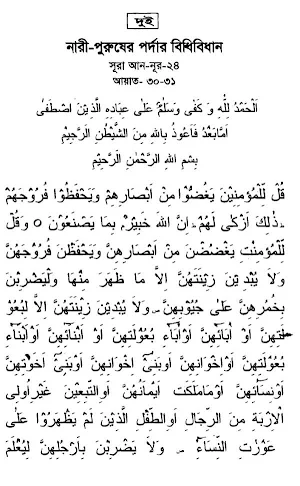 দুই
নারী-পুরুষের পর্দার বিধিবিধান
সূরা আন-নূর-২৪
আয়াত- ৩০-৩১
اَلْحَمْدُ لِلّٰهِ وَ كَفٰى وَسَلٰمٌ عَلٰى عِبَادِهِ الَّذِيْنَ اصْطَفٰى
اَمَّا بَعْدُ فَاَعُوْذُ بِاللّٰهِ مِنَ الشَّيْطٰنِ الرَّجِيْمِ
بِسْمِ اللّٰهِ الرَّحْمٰنِ الرَّحِيْمِ
قُلْ لِّلْمُؤْمِنِيْنَ يَغُضُّوْا مِنْ اَبْصَارِهِمْ وَيَحْفَظُوْا فُرُوْجَهُمْ
ـ ذٰلِكَ اَزْكٰى لَهُمْ ـ اِنَّ اللّٰهَ خَبِيْرٌۢ بِمَا يَصْنَعُوْنَ ○ وَقُلْ
لِّلْمُؤْمِنٰتِ يَغْضُضْنَ مِنْ اَبْصَارِهِنَّ وَيَحْفَظْنَ فُرُوْجَهُنَّ
وَلَا يُبْدِيْنَ زِيْنَتَهُنَّ اِلَّا مَا ظَهَرَ مِنْهَا وَلْيَضْرِبْنَ
بِخُمُرِهِنَّ عَلٰى جُيُوْبِهِنَّ ـ وَلَا يُبْدِيْنَ زِيْنَتَهُنَّ اِلَّا لِبُعُوْ
لَتِهِنَّ اَوْ اٰبَآئِهِنَّ اَوْ اٰبَآءِ بُعُوْلَتِهِنَّ اَوْ اَبْنَآئِهِنَّ اَوْ اَبْنَآءِ
بُعُوْلَتِهِنَّ اَوْ اِخْوَانِهِنَّ اَوْ بَنِيْٓ اِخْوَانِهِنَّ اَوْ بَنِيْٓ اَخَوٰتِهِنَّ
اَوْ نِسَآئِهِنَّ اَوْ مَا مَلَكَتْ اَيْمَانُهُنَّ اَوِ التّٰبِعِيْنَ غَيْرِ اُولِى
الْاِرْبَةِ مِنَ الرِّجَالِ اَوِ الطِّفْلِ الَّذِيْنَ لَمْ يَظْهَرُوْا عَلٰى
عَوْرٰتِ النِّسَآءِ ـ وَلَا يَضْرِبْنَ بِاَرْجُلِهِنَّ لِيُعْلَمَ